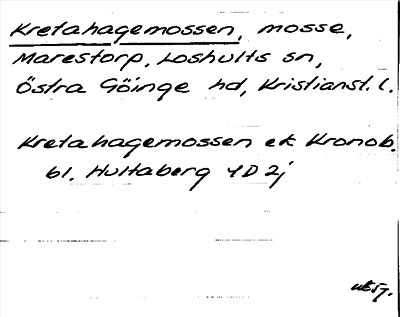 Kretahagemossen, mosse,
Marestorp, Loshults sn,
Östra Göinge hd, Kristianst. l.
Kretahagemossen ek Kronob.
bl. Hultaberg 4D2j